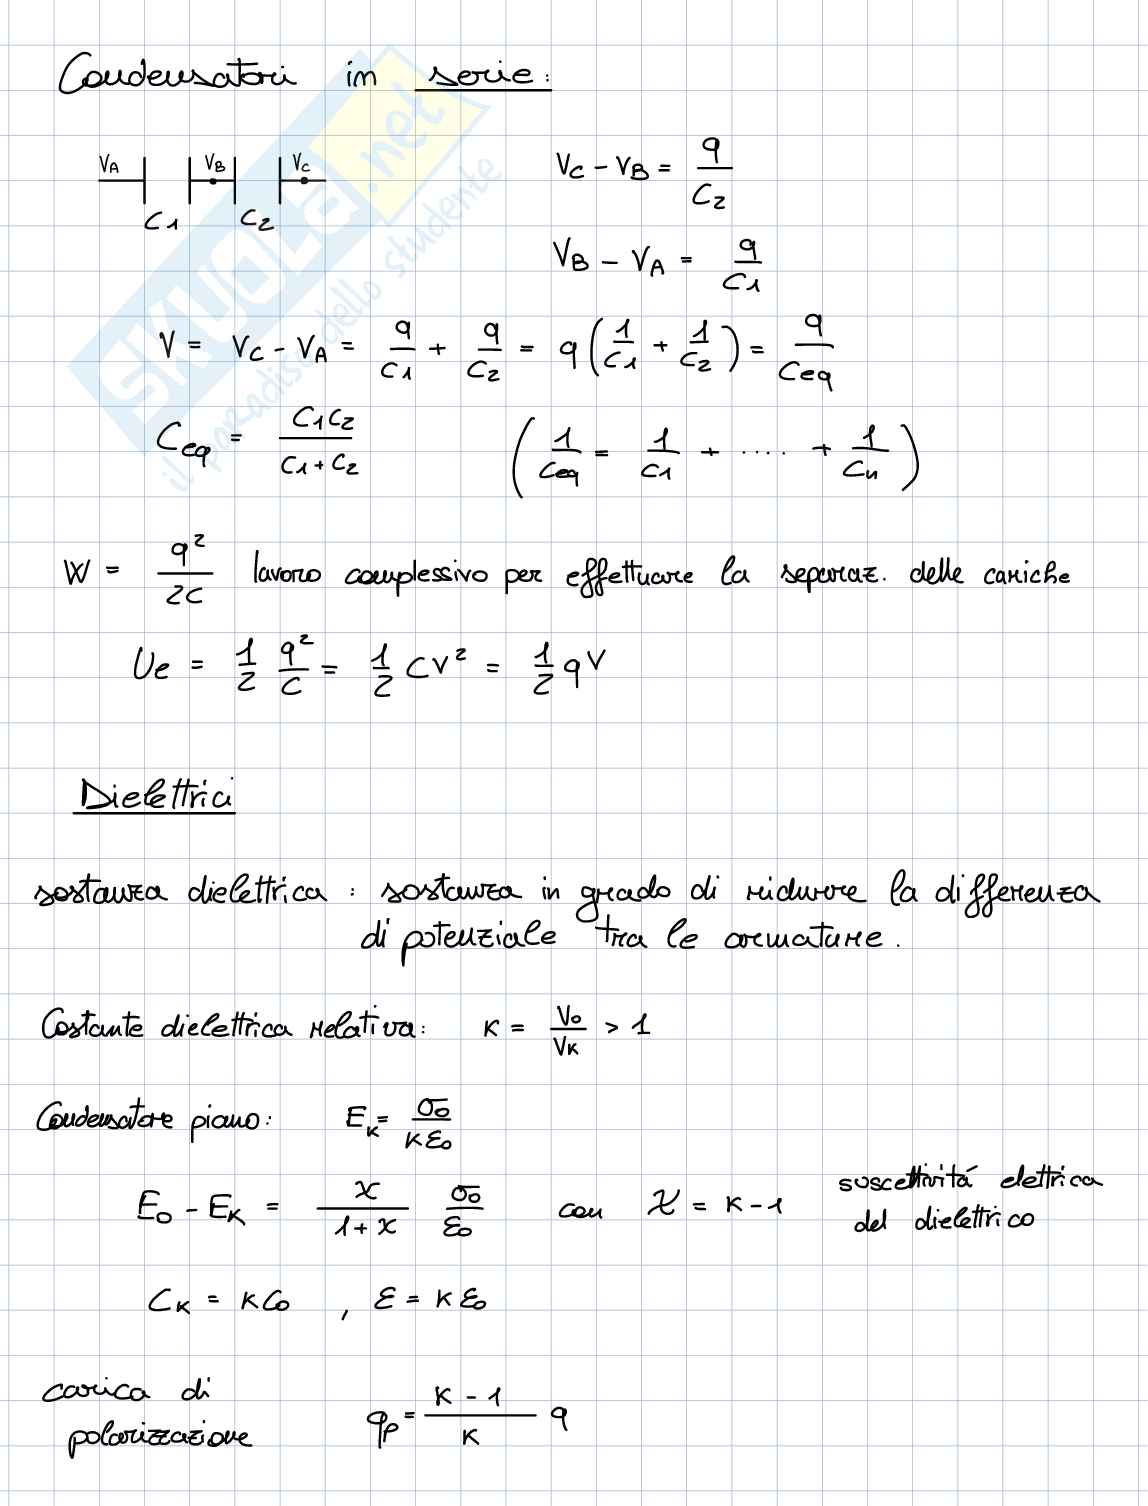 Condensatori in serie:
VA VB VC
C1 C2
VC - VB = q/C2
VB - VA = q/C1
V = VC - VA = q/C1 + q/C2 = q (1/C1 + 1/C2) = q/Ceq
Ceq = C1C2/(C1 + C2) (1/Ceq = 1/C1 + .... + 1/Cn)
W = q²/2C lavoro complessivo per effettuare la separaz. delle cariche
Ue = 1/2 q²/C = 1/2 CV² = 1/2 qV
Dielettrici
sostanza dielettrica : sostanza in grado di ridurre la differenza
di potenziale tra le armature.
Costante dielettrica relativa: κ = V0/Vκ > 1
Condensatore piano: Eκ = σ0/κε0
E0 - Eκ = χ/(1+χ) σ0/ε0 con χ = κ - 1 suscettivitá elettrica
del dielettrico
Cκ = κC0 , ε = κε0
carica di
polarizzazione qp = (κ - 1)/κ q
SKUOLA.net
il paradiso dello studente